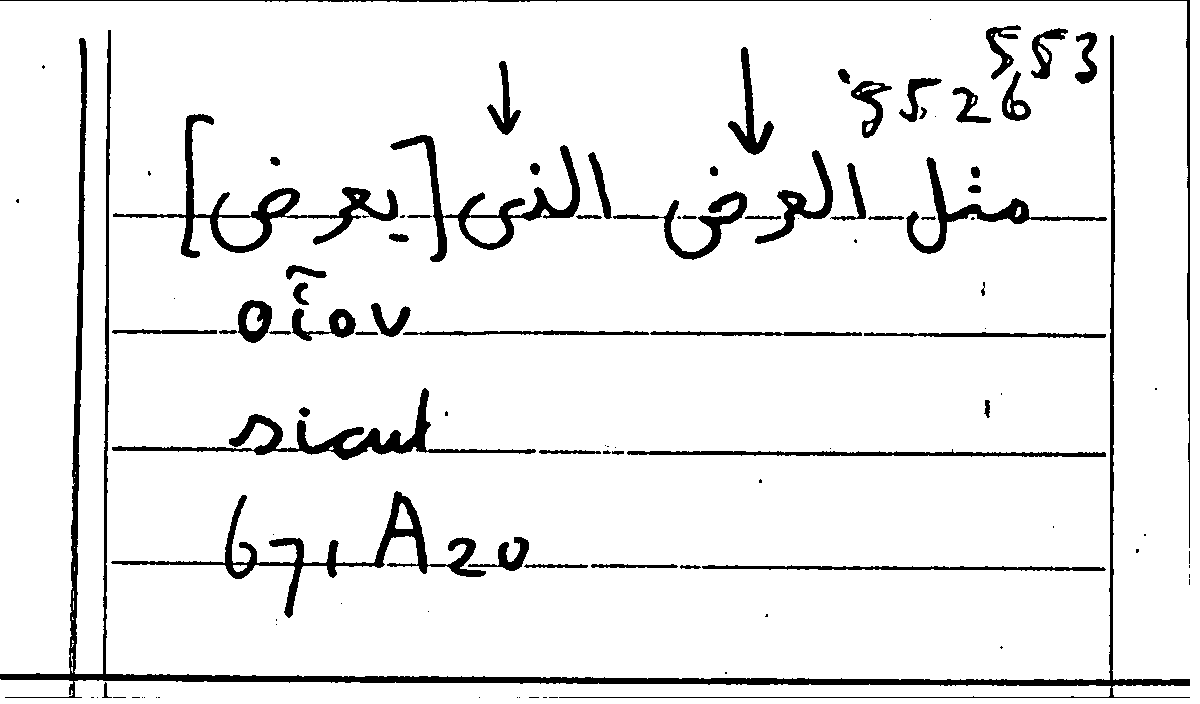 5553
5526
مثل العرض الذى [يعرض]
οἷον
sicut
671, A20